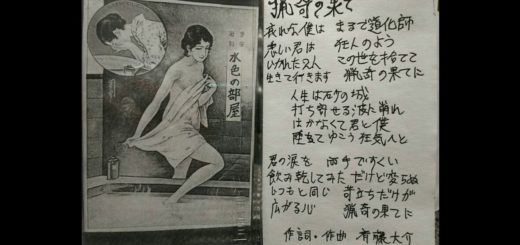 水色の部屋
猟奇の果て
哀れな僕は まるで道化師
悲しい君は 狂人のよう
いかれた二人 この世を捨てて
生きて行きます 猟奇の果てに
人生は砂の城
打ち寄せる波に崩れ
はかなくて君と僕
堕ちてゆこう 狂気へと
君の涙を 両手ですくい
飲み乾してみた だけど変らぬ
いつもと同じ 苛立ちだけが
広がる心 猟奇の果てに
作詞・作曲 斉藤大介